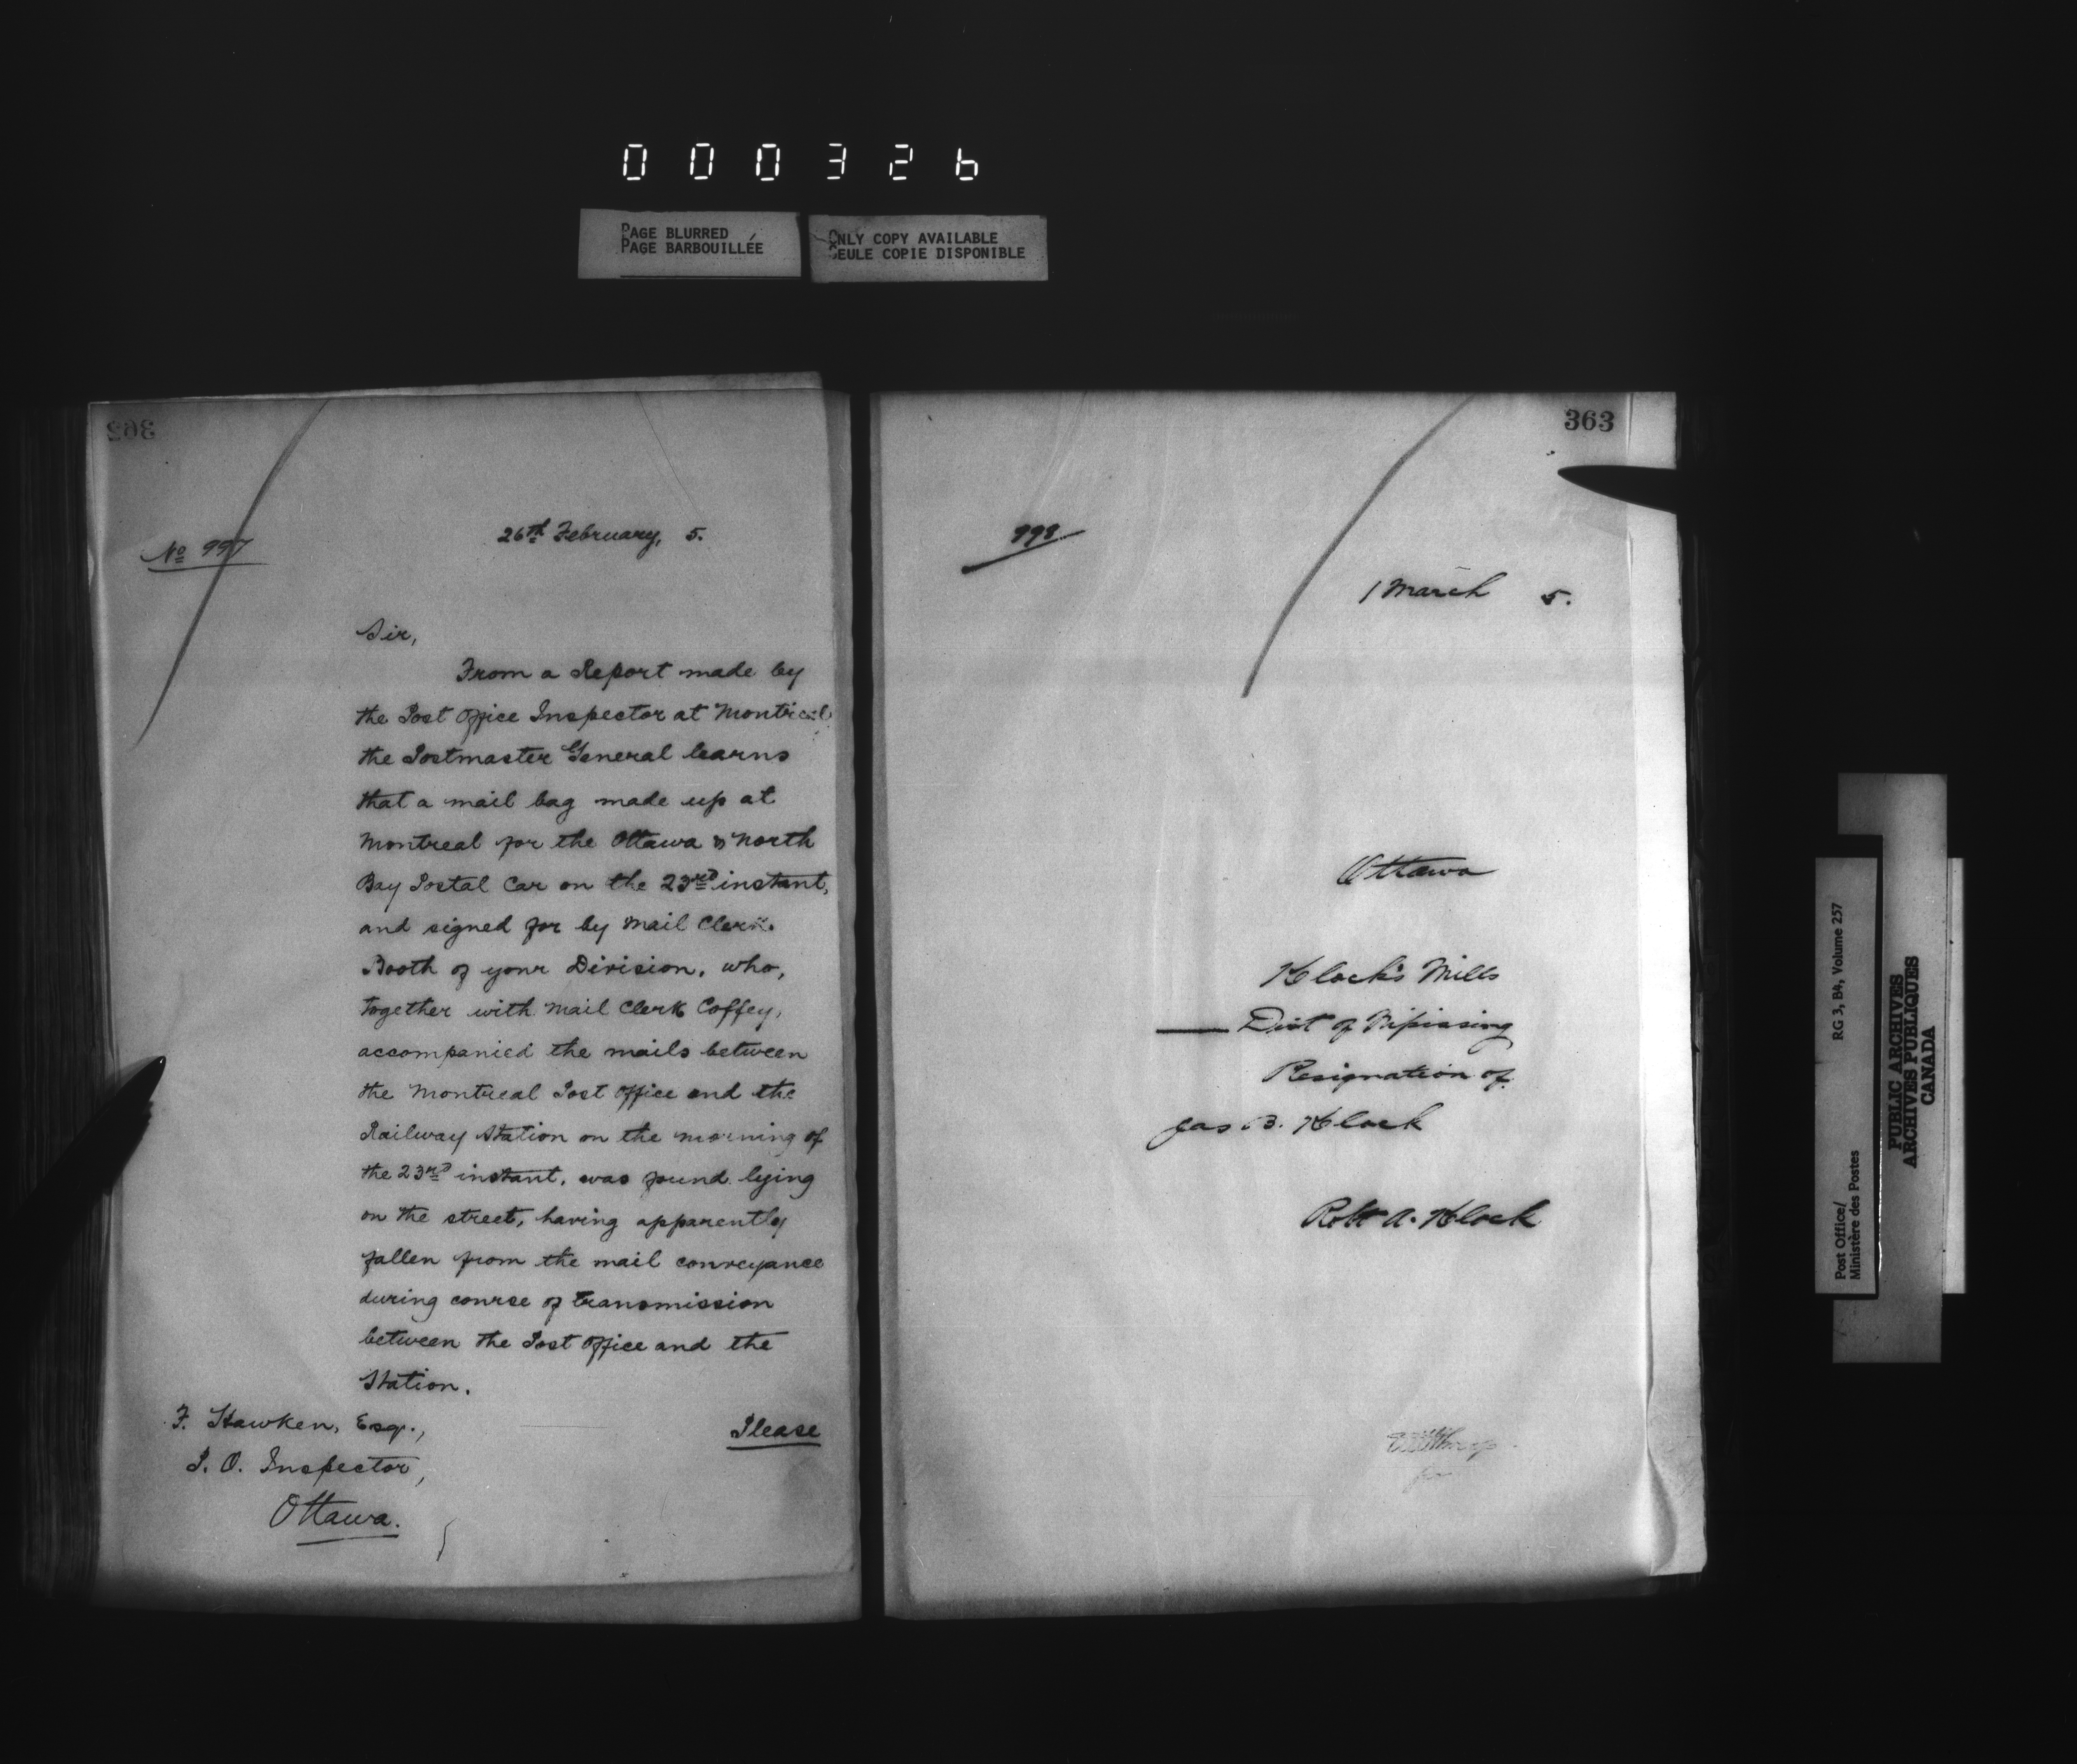 000326
PAGE BLURRED
PAGE BARBOUILLÉE
ONLY COPY AVAILABLE
SEULE COPIE DISPONIBLE
362
No 997
26th February, 5.
Sir,
From a Report made by
the Post Office Inspector at Montreal
the Postmaster General learns
that a mail bag made up at
Montreal for the Ottawa & North
Bay Postal Car on the 23rd instant,
and signed for by Mail Clerk
Booth of your Division, who,
together with Mail Clerk Coffey,
accompanied the mails between
the Montreal Post Office and the
Railway Station on the morning of
the 23rd instant, was found lying
on the street, having apparently
fallen from the mail conveyance
during course of transmission
between the Post Office and the
Station.
Please
F. Hawken, Esq.,
P. O. Inspector,
Ottawa.
363
998
1 March 5.
Ottawa
Klock's Mills
Dist of Nipissing
Resignation of
Jas B. Klock
Robt A. Klock
Post Office/
Ministère des Postes
RG 3, B4, Volume 257
PUBLIC ARCHIVES
ARCHIVES PUBLIQUES
CANADA